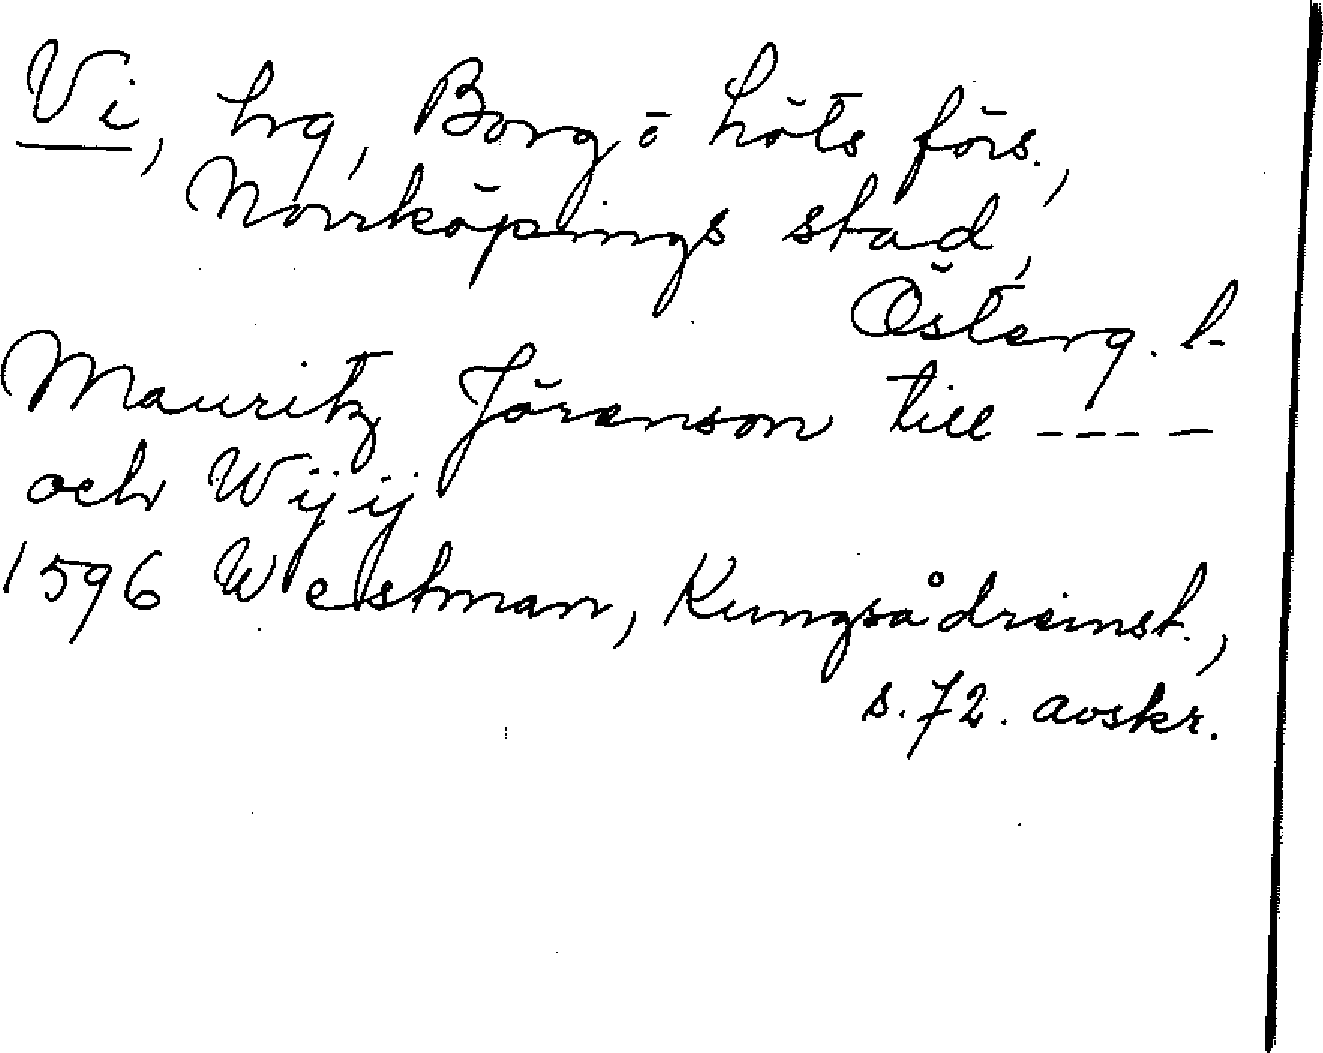 Vi, hrg, Borg o Löts förs.,
Norrköpings stad,
Österg. l.
Mauritz Jöranson till ----
och Wijij
1596 Westman, Kungsådreinst.,
s. 72. avskr.